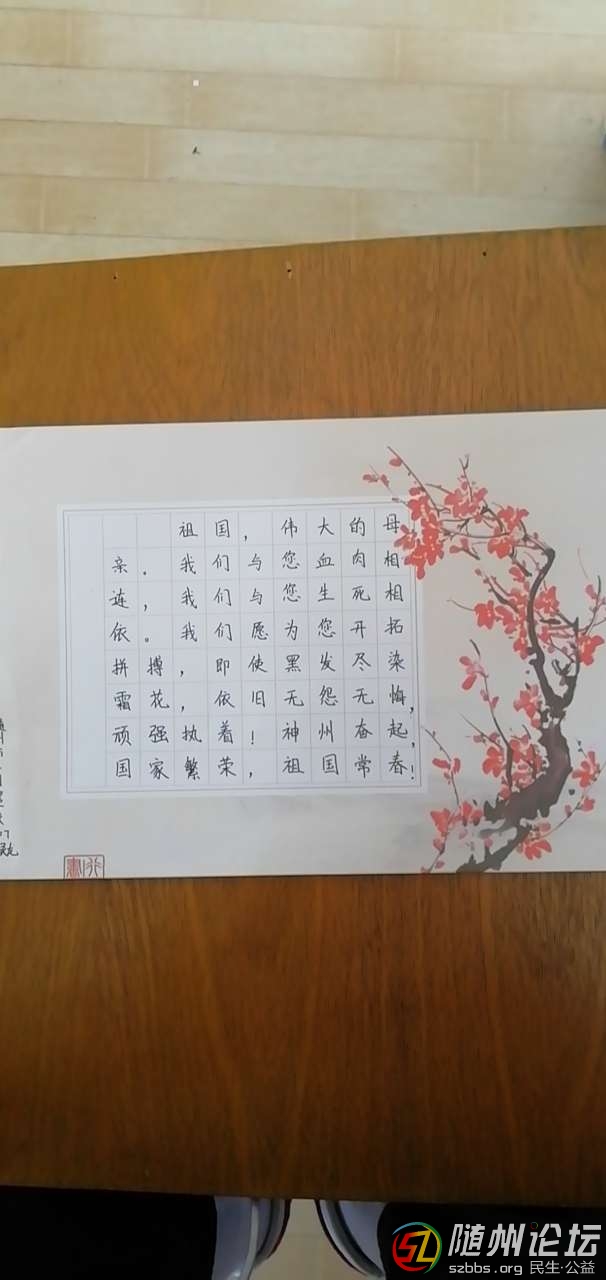 祖国，伟大的母
亲。我们与您血肉相
连，我们与您生死相
依。我们愿为您开拓
拼搏，即使黑发尽染
霜花，依旧无怨无悔，
顽强执着！神州奋起，
国家繁荣，祖国常春！
随州论坛
szbbs.org 民生·公益